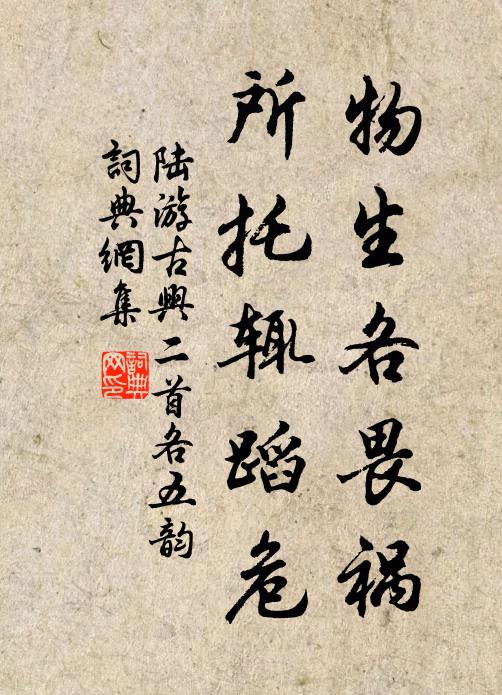 物生各畏祸
所托辄蹈危
陆游古興二首各五韵
詞典網集
詞典网印